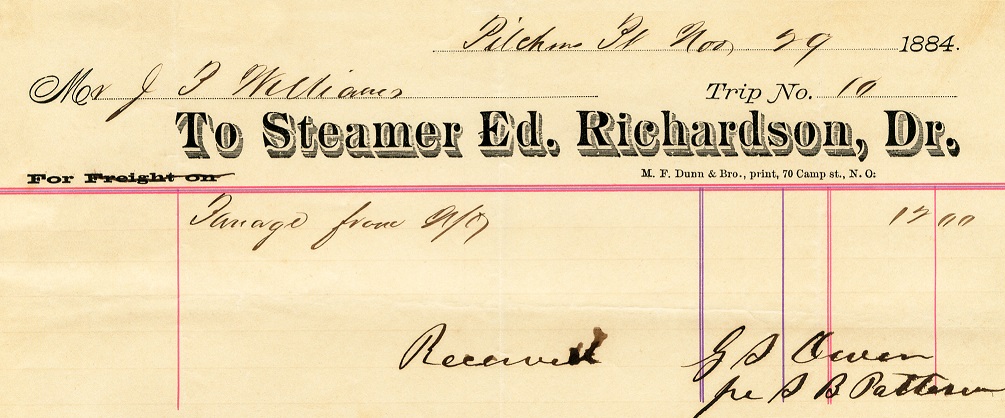 Pilchers Pt Nov 29 1884.
Mr J T Williams Trip No. 10
To Steamer Ed. Richardson, Dr.
For Freight on M. F. Dunn & Bro., print, 70 Camp st., N. O:
from N/O 12 00
Received G S Owen
pr S B Patterson